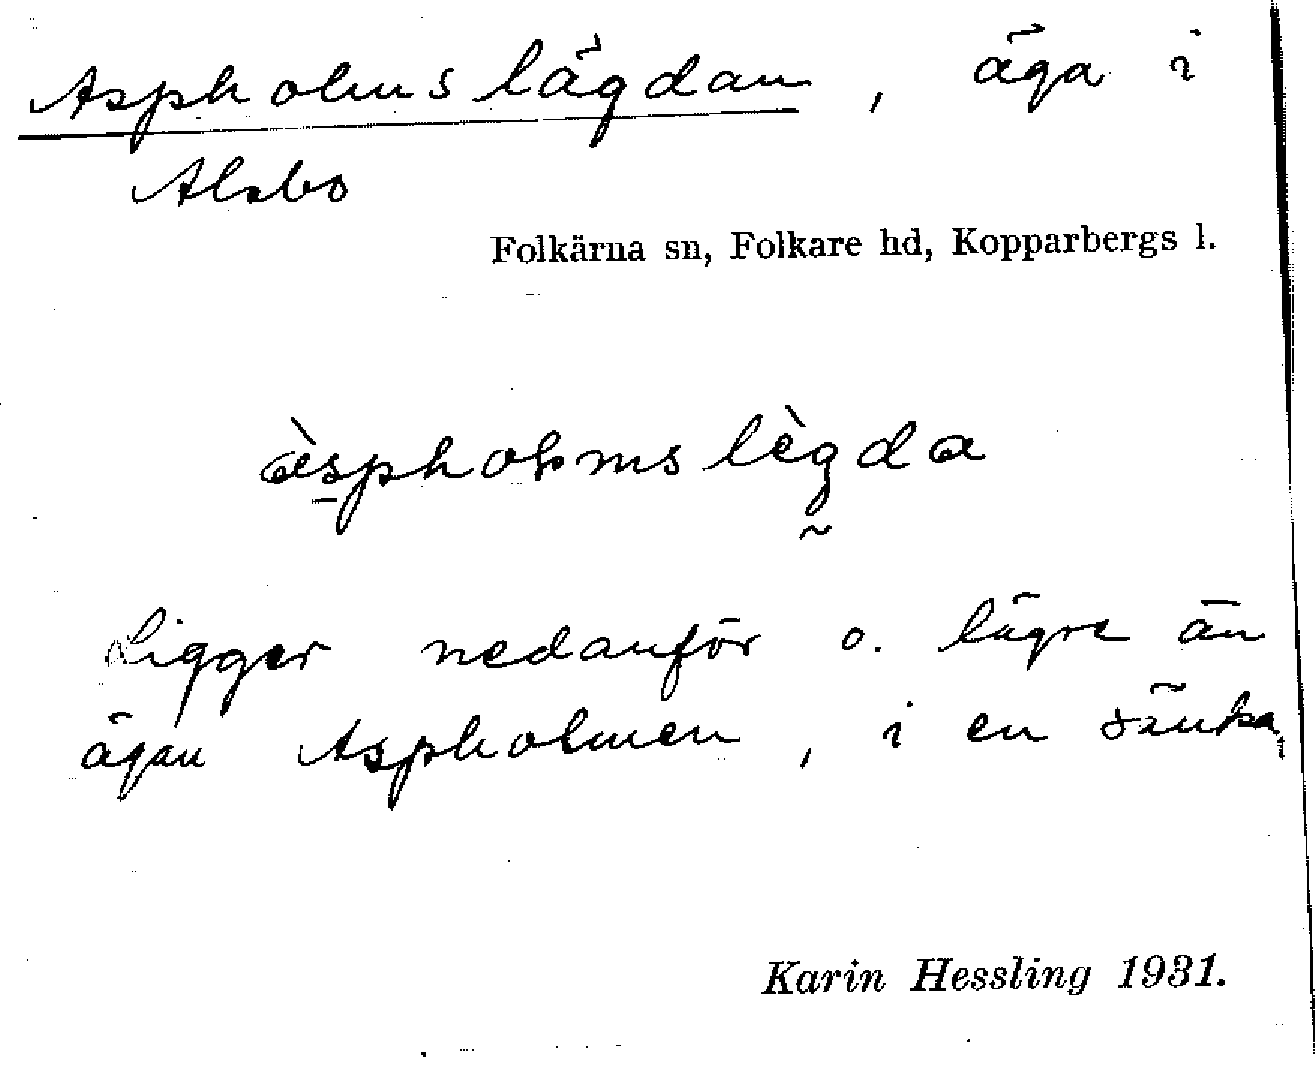 Aspholmslägdan, äga i
Alsbo
Folkärna sn, Folkare hd, Kopparbergs l.
àspholmslègda
Ligger nedanför o. lägre än
ägan Aspholmen, i en sänka.
Karin Hessling 1931.